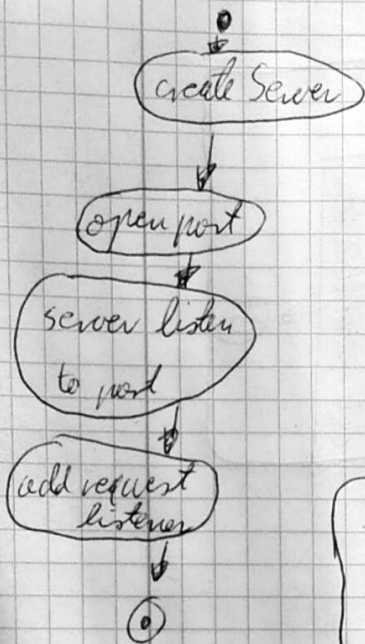 create Server
open port
server listen
to port
add request
listener